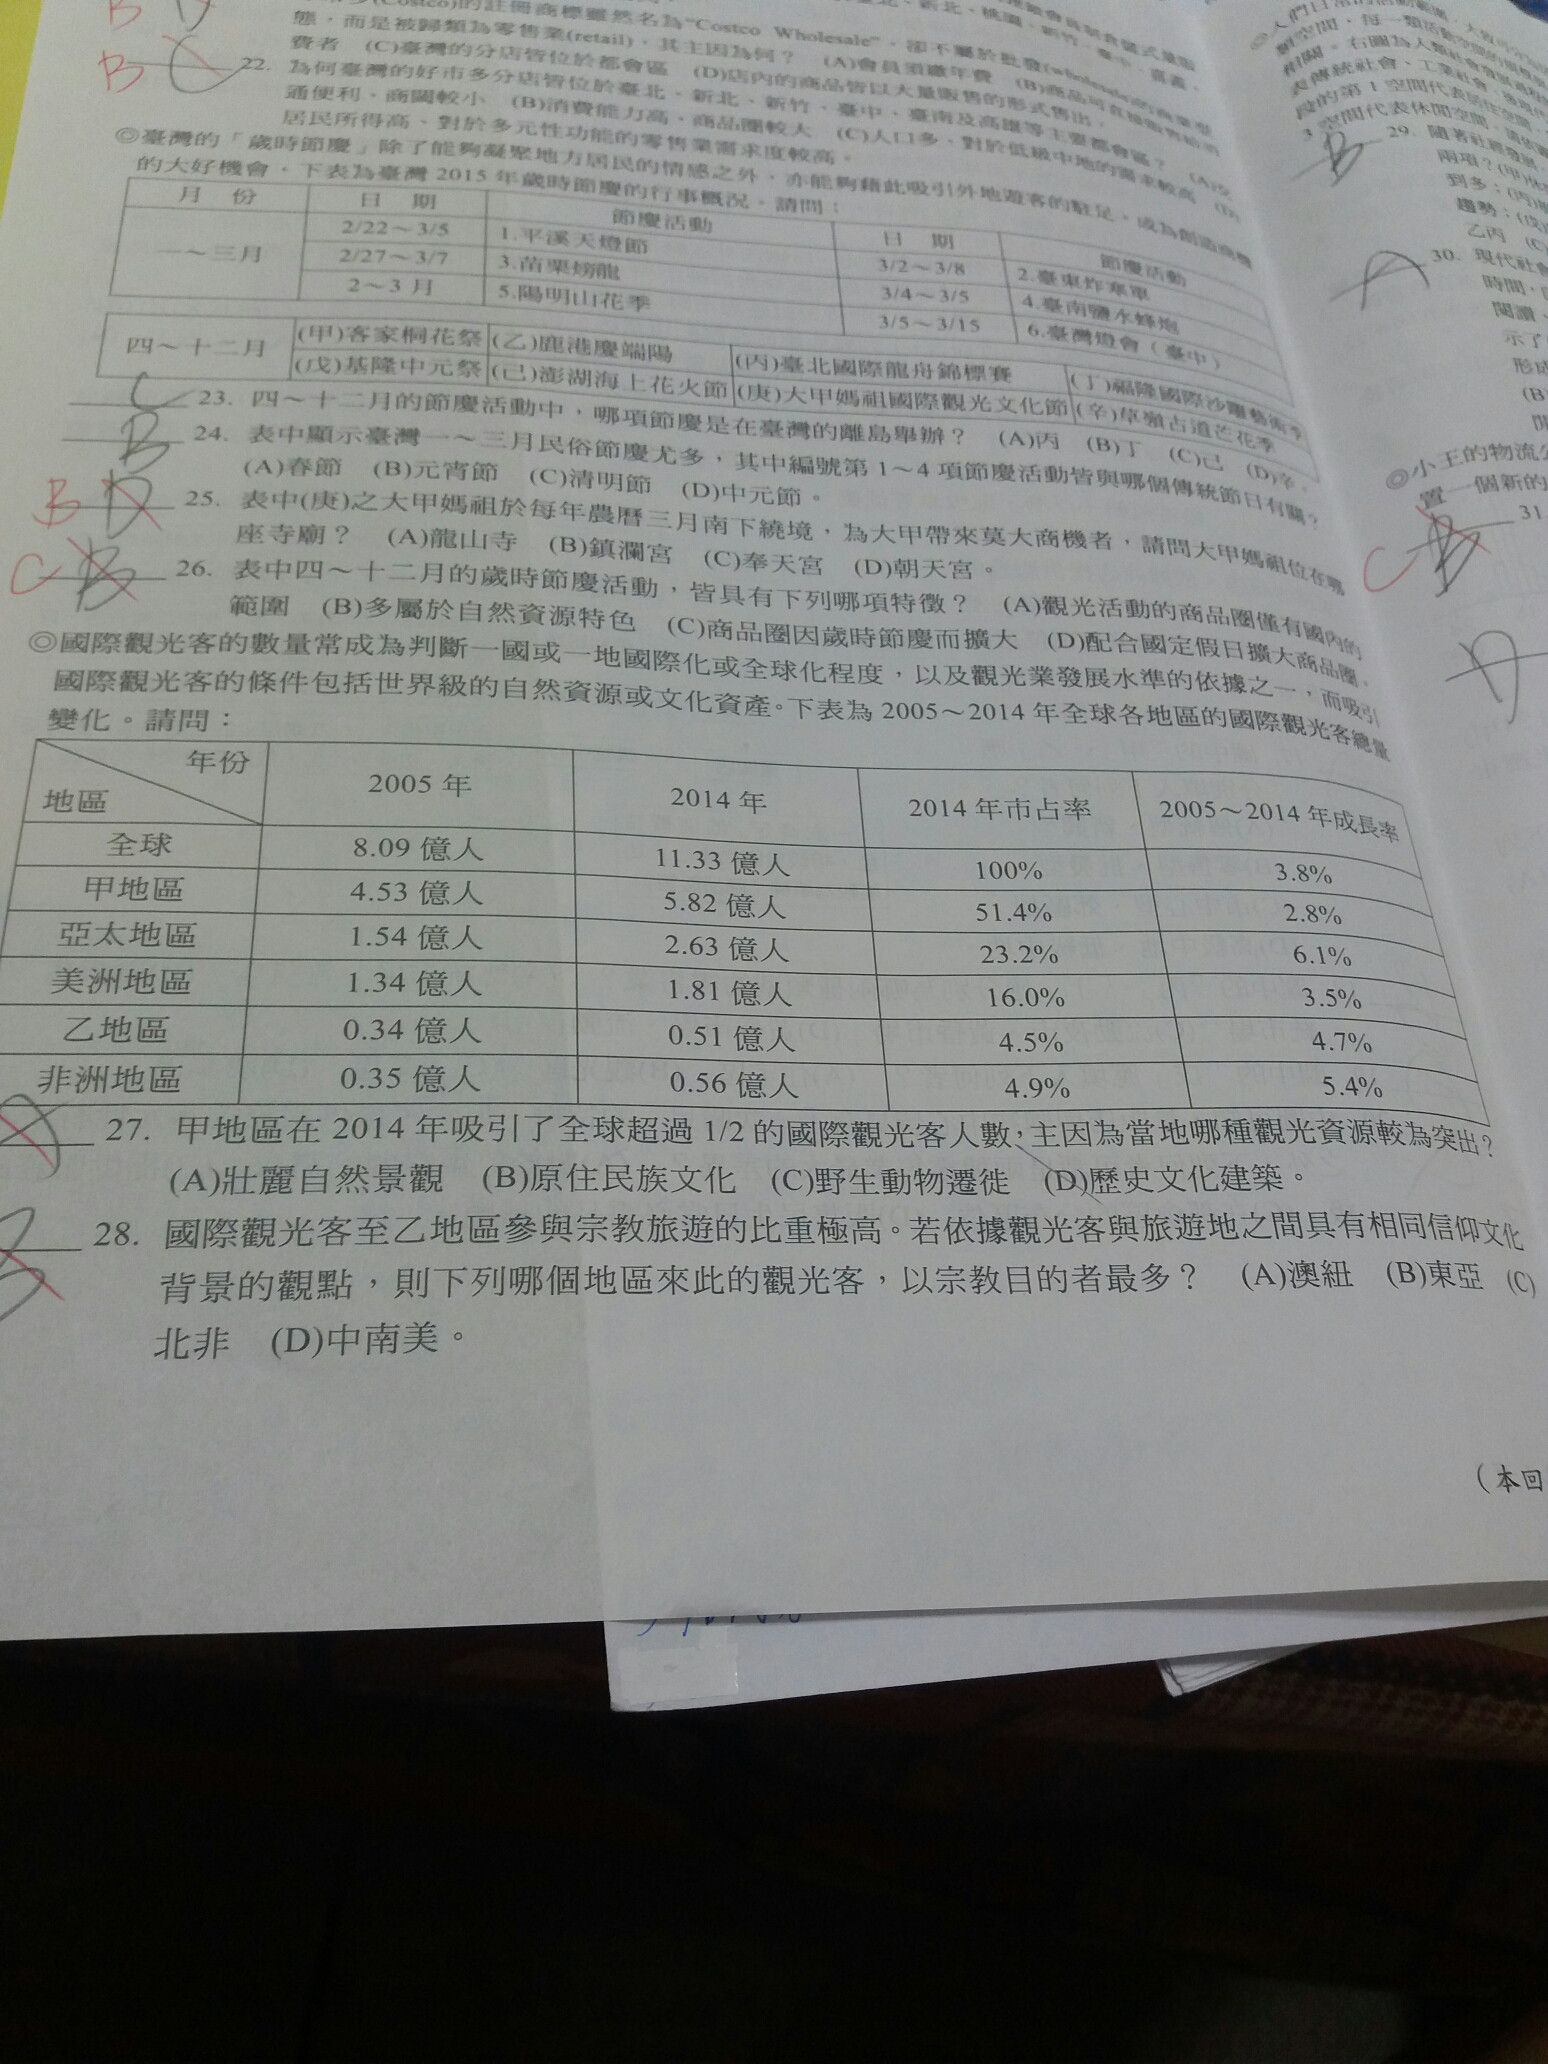 (Costco)的註冊商標雖然名為“Costco Wholesale”，卻不屬於批發(wholesale)的商業型
態，而是被歸類為零售業(retail)，其主因為何？ (A)會員須繳年費 (B)商品可直接販售給消
費者 (C)臺灣的分店皆位於都會區 (D)店內的商品皆以大量販售的形式售出。
B C 22. 為何臺灣的好市多分店皆位於臺北、新北、新竹、臺中、臺南及高雄等主要都會區？ (A)交
通便利、商閾較小 (B)消費能力高、商品圈較大 (C)人口多、對於低級中地的需求較高 (D)
居民所得高、對於多元性功能的零售業需求度較高。
◎臺灣的「歲時節慶」除了能夠凝聚地方居民的情感之外，亦能夠藉此吸引外地遊客的駐足，成為創造商機
的大好機會。下表為臺灣 2015 年歲時節慶的行事概況。請問：
月 份 日 期 節慶活動 日 期 節慶活動
一～三月 2/22～3/5 1.平溪天燈節 3/2～3/8 2.臺東炸寒單
2/27～3/7 3.苗栗㷫龍 3/4～3/5 4.臺南鹽水蜂炮
2～3 月 5.陽明山花季 3/5～3/15 6.臺灣燈會（臺中）
四～十二月 (甲)客家桐花祭 (乙)鹿港慶端陽 (丙)臺北國際龍舟錦標賽 (丁)福隆國際沙雕藝術季
(戊)基隆中元祭 (己)澎湖海上花火節 (庚)大甲媽祖國際觀光文化節 (辛)草嶺古道芒花季
C 23. 四～十二月的節慶活動中，哪項節慶是在臺灣的離島舉辦？ (A)丙 (B)丁 (C)己 (D)辛。
B 24. 表中顯示臺灣一～三月民俗節慶尤多，其中編號第 1～4 項節慶活動皆與哪個傳統節日有關？
(A)春節 (B)元宵節 (C)清明節 (D)中元節。
B D 25. 表中(庚)之大甲媽祖於每年農曆三月南下繞境，為大甲帶來莫大商機者，請問大甲媽祖位在哪
座寺廟？ (A)龍山寺 (B)鎮瀾宮 (C)奉天宮 (D)朝天宮。
C B 26. 表中四～十二月的歲時節慶活動，皆具有下列哪項特徵？ (A)觀光活動的商品圈僅有國內的
範圍 (B)多屬於自然資源特色 (C)商品圈因歲時節慶而擴大 (D)配合國定假日擴大商品圈。
◎國際觀光客的數量常成為判斷一國或一地國際化或全球化程度，以及觀光業發展水準的依據之一，而吸引
國際觀光客的條件包括世界級的自然資源或文化資產。下表為 2005～2014 年全球各地區的國際觀光客總量
變化。請問：
年份 地區 2005 年 2014 年 2014 年市占率 2005～2014 年成長率
全球 8.09 億人 11.33 億人 100% 3.8%
甲地區 4.53 億人 5.82 億人 51.4% 2.8%
亞太地區 1.54 億人 2.63 億人 23.2% 6.1%
美洲地區 1.34 億人 1.81 億人 16.0% 3.5%
乙地區 0.34 億人 0.51 億人 4.5% 4.7%
非洲地區 0.35 億人 0.56 億人 4.9% 5.4%
27. 甲地區在 2014 年吸引了全球超過 1/2 的國際觀光客人數，主因為當地哪種觀光資源較為突出？
(A)壯麗自然景觀 (B)原住民族文化 (C)野生動物遷徙 (D)歷史文化建築。
28. 國際觀光客至乙地區參與宗教旅遊的比重極高。若依據觀光客與旅遊地之間具有相同信仰文化
背景的觀點，則下列哪個地區來此的觀光客，以宗教目的者最多？ (A)澳紐 (B)東亞 (C)
北非 (D)中南美。
(本回
相關。右圖為人類社會發展過程
表傳統社會、工業社會、後現代
段的第 1 空間代表居住空間，
3 空間代表休閒空間。請依據
B 29. 隨著社經發展，
兩項？(甲)
到多；(丙)
趨勢；(戊)
乙丙 (C)
A 30. 現代社會
時間，
閱讀、
示了
形成
(B)
◎小王的物流公
置一個新的
C B 31.
D